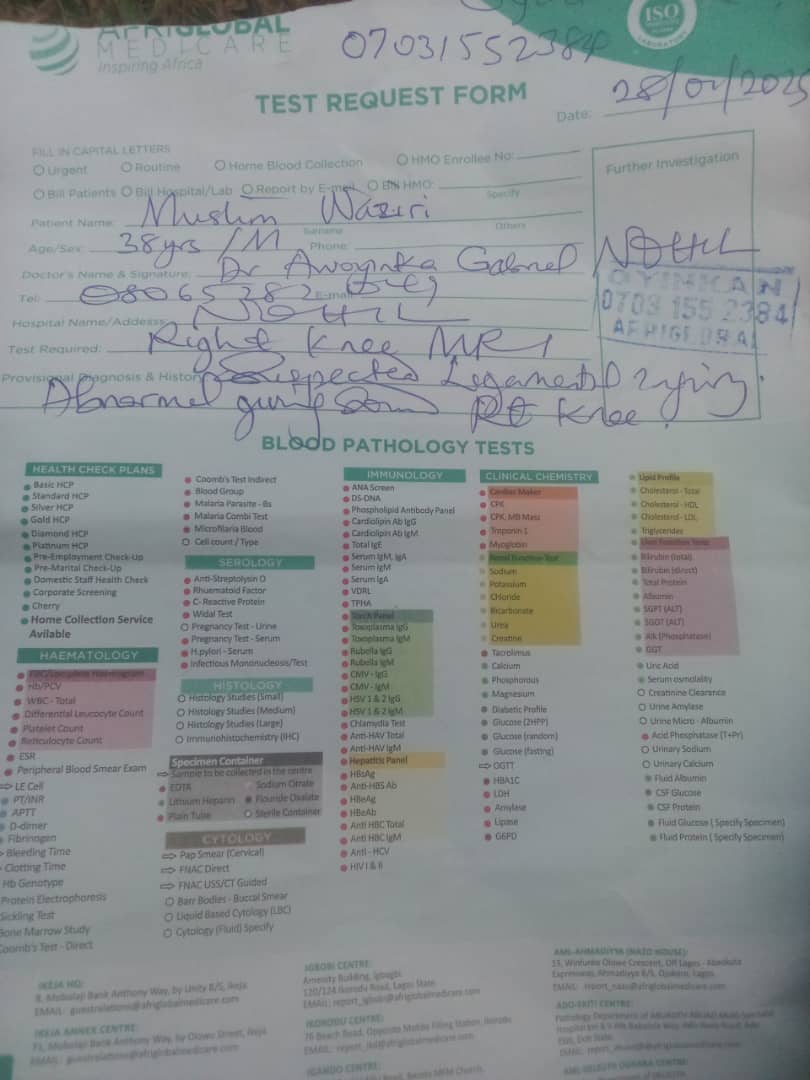 AFRIGLOBAL
MEDICARE
Inspiring Africa
ISO
07031552384
TEST REQUEST FORM
Date: 28/01/2025
FILL IN CAPITAL LETTERS
Urgent Routine Home Blood Collection HMO Enrollee No:
Bill Patients Bill Hospital/Lab Report by E-mail Bill HMO:
Specify
Further Investigation
Patient Name: Muslim Waziri
Surname Others
Age/Sex: 38yrs/M Phone:
Doctor's Name & Signature: Dr Awoyinka Gabriel NOHIL
Tel: 08065282 E-mail
OYINKAN
0703 155 2384
AFRIGLOBAL
Hospital Name/Address: NOHIL
Test Required: Right Knee MRI
Provisional Diagnosis & History Suspected Ligamental
Abnormal Rt Knee
BLOOD PATHOLOGY TESTS
HEALTH CHECK PLANS
Basic HCP
Standard HCP
Silver HCP
Gold HCP
Diamond HCP
Platinum HCP
Pre-Employment Check-Up
Pre-Marital Check-Up
Domestic Staff Health Check
Corporate Screening
Cherry
Home Collection Service
Avilable
HAEMATOLOGY
FBC/Complete Haemogram
Hb/PCV
WBC - Total
Differential Leucocyte Count
Platelet Count
Reticulocyte Count
ESR
Peripheral Blood Smear Exam
LE Cell
PT/INR
APTT
D-dimer
Fibrinogen
Bleeding Time
Clotting Time
Hb Genotype
Protein Electrophoresis
Sickling Test
Bone Marrow Study
Coomb's Test - Direct
Coomb's Test Indirect
Blood Group
Malaria Parasite - Bs
Malaria Combi Test
Microfilaria Blood
Cell count / Type
SEROLOGY
Anti-Streptolysin O
Rhuematoid Factor
C- Reactive Protein
Widal Test
Pregnancy Test - Urine
Pregnancy Test - Serum
H.pylori - Serum
Infectious Mononucleosis/Test
HISTOLOGY
Histology Studies (Small)
Histology Studies (Medium)
Histology Studies (Large)
Immunohistochemistry (IHC)
Specimen Container
Sample to be collected in the centre
EDTA Sodium Citrate
Lithium Heparin Flouride Oxalate
Plain Tube Sterile Container
CYTOLOGY
Pap Smear (Cervical)
FNAC Direct
FNAC USS/CT Guided
Barr Bodies - Buccal Smear
Liquid Based Cytology (LBC)
Cytology (Fluid) Specify
IMMUNOLOGY
ANA Screen
DS-DNA
Phospholipid Antibody Panel
Cardiolipin Ab IgG
Cardiolipin Ab IgM
Total IgE
Serum IgM, IgA
Serum IgM
Serum IgA
VDRL
TPHA
Torch Panel
Toxoplasma IgG
Toxoplasma IgM
Rubella IgG
Rubella IgM
CMV - IgG
CMV - IgM
HSV 1 & 2 IgG
HSV 1 & 2 IgM
Chlamydia Test
Anti-HAV Total
Anti-HAV IgM
Hepatitis Panel
HBsAg
Anti-HBS Ab
HBeAg
HBeAb
Anti HBC Total
Anti HBC IgM
Anti - HCV
HIV I & II
CLINICAL CHEMISTRY
Cardiac Maker
CPK
CPK, MB Mass
Troponin 1
Myoglobin
Renal Function Test
Sodium
Potassium
Chloride
Bicarbonate
Urea
Creatine
Tacrolimus
Calcium
Phosphorous
Magnesium
Diabetic Profile
Glucose (2HPP)
Glucose (random)
Glucose (fasting)
OGTT
HBA1C
LDH
Amylase
Lipase
G6PD
Lipid Profile
Cholesterol - Total
Cholesterol - HDL
Cholesterol - LDL
Triglycerides
Liver Function Tests
Bilirubin (total)
Bilirubin (direct)
Total Protein
Albumin
SGPT (ALT)
SGOT (ALT)
Alk (Phosphatase)
GGT
Uric Acid
Serum osmolality
Creatinine Clearance
Urine Amylase
Urine Micro - Albumin
Acid Phosphatase (T+Pr)
Urinary Sodium
Urinary Calcium
Fluid Albumin
CSF Glucose
CSF Protein
Fluid Glucose ( Specify Specimen)
Fluid Protein ( Specify Specimen)
IKEJA HQ:
8, Mobolaji Bank Anthony Way, by Unity B/S, Ikeja
EMAIL: guestrelations@afriglobalmedicare.com
IKEJA ANNEX CENTRE:
71, Mobolaji Bank Anthony Way, by Olowu Street, Ikeja
EMAIL: guestrelations@afriglobalmedicare.com
IGBOBI CENTRE:
Amenity Building, Igbogbi
120/124 Ikorodu Road, Lagos State
IKORODU CENTRE:
76 Beach Road, Opposite Mobile Filling Station, Ikorodu
IGANDO CENTRE:
AML-AHMADIYYA (NAZO HOUSE):
ADO-EKITI CENTRE: